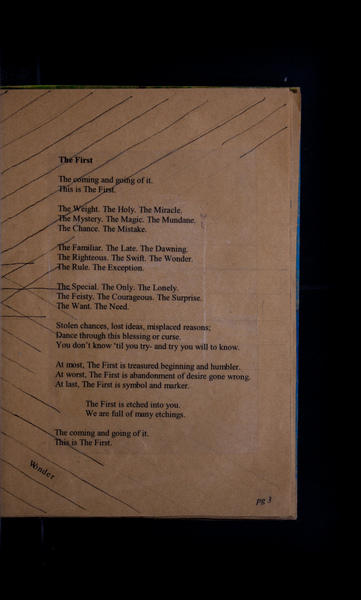 The First
The coming and going of it.
This is The First.
The Weight. The Holy. The Miracle.
The Mystery. The Magic. The Mundane.
The Chance. The Mistake.
The Familiar. The Late. The Dawning.
The Righteous. The Swift. The Wonder.
The Rule. The Exception.
The Special. The Only. The Lonely.
The Feisty. The Courageous. The Surprise.
The Want. The Need.
Stolen chances, lost ideas, misplaced reasons;
Dance through this blessing or curse.
You don't know 'til you try- and try you will to know.
At most, The First is treasured beginning and humbler.
At worst, The First is abandonment of desire gone wrong.
At last, The First is symbol and marker.
The First is etched into you.
We are full of many etchings.
The coming and going of it.
This is The First.
Winder
pg 3